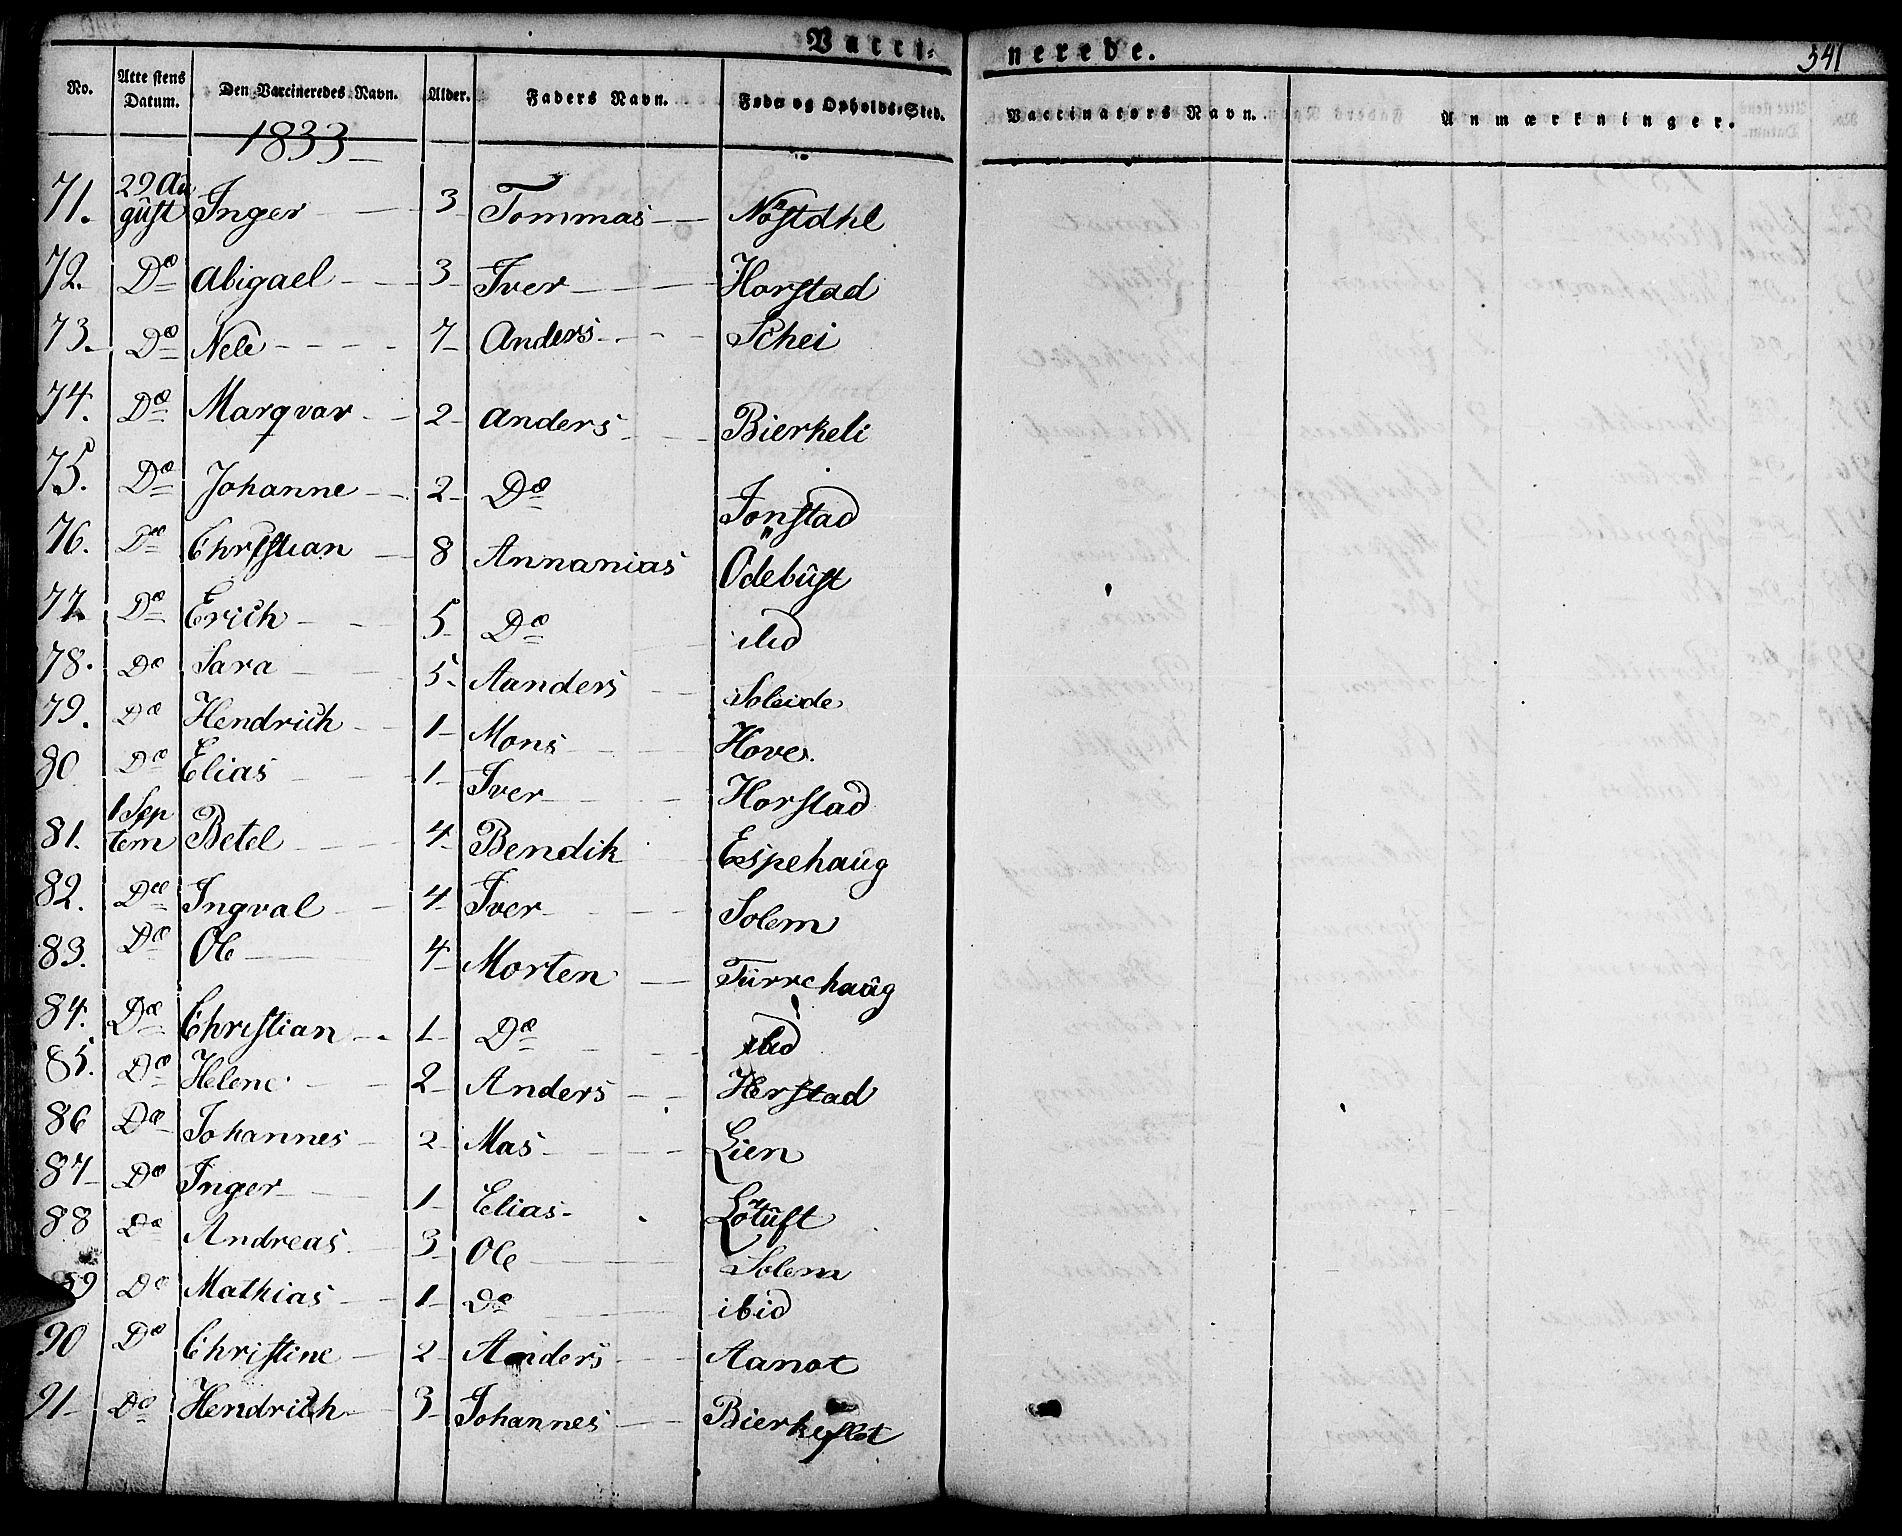 Vacci- nerede. 341
No. Atte stens Datum. Den Vaccineredes Navn. Alder. Faders Navn. Føde og Opholds-Sted. Vaccinatørs Navn. Anmærkninger.
1833
71. 29 Au gust Inger 3 Tommas Nöstdhl
72. Do Abigael 3 Iver Horstad
73. Do Nele 7 Anders Schei
74. Do Marqvar 2 Anders Bierkeli
75. Do Johanne 2 Do Jonstad
76. Do Christian 8 Annanias Ödebust
77. Do Erich 5 Do ibid
78. Do Sara 5 Aanders Soleide
79. Do Hendrich 1 Mons Hove
80 Do Elias 1 Iver Horstad
81. 1 Sep tem Betel 4 Bendik Espehaug
82. Do Ingval 4 Iver Solem
83. Do Ole 4 Morten Turrehaug
84. Do Christian 1 Do ibid
85. Do Helene 2 Anders Herstad
86 Do Johannes 2 Mas Lien
87 Do Inger 1 Elias Lötuft
88 Do Andreas 3 Ole Solem
89 Do Mathias 1 Do ibid
90 Do Christine 2 Anders Aanot
91 Do Hendrich 3 Johannes Bierkeflot